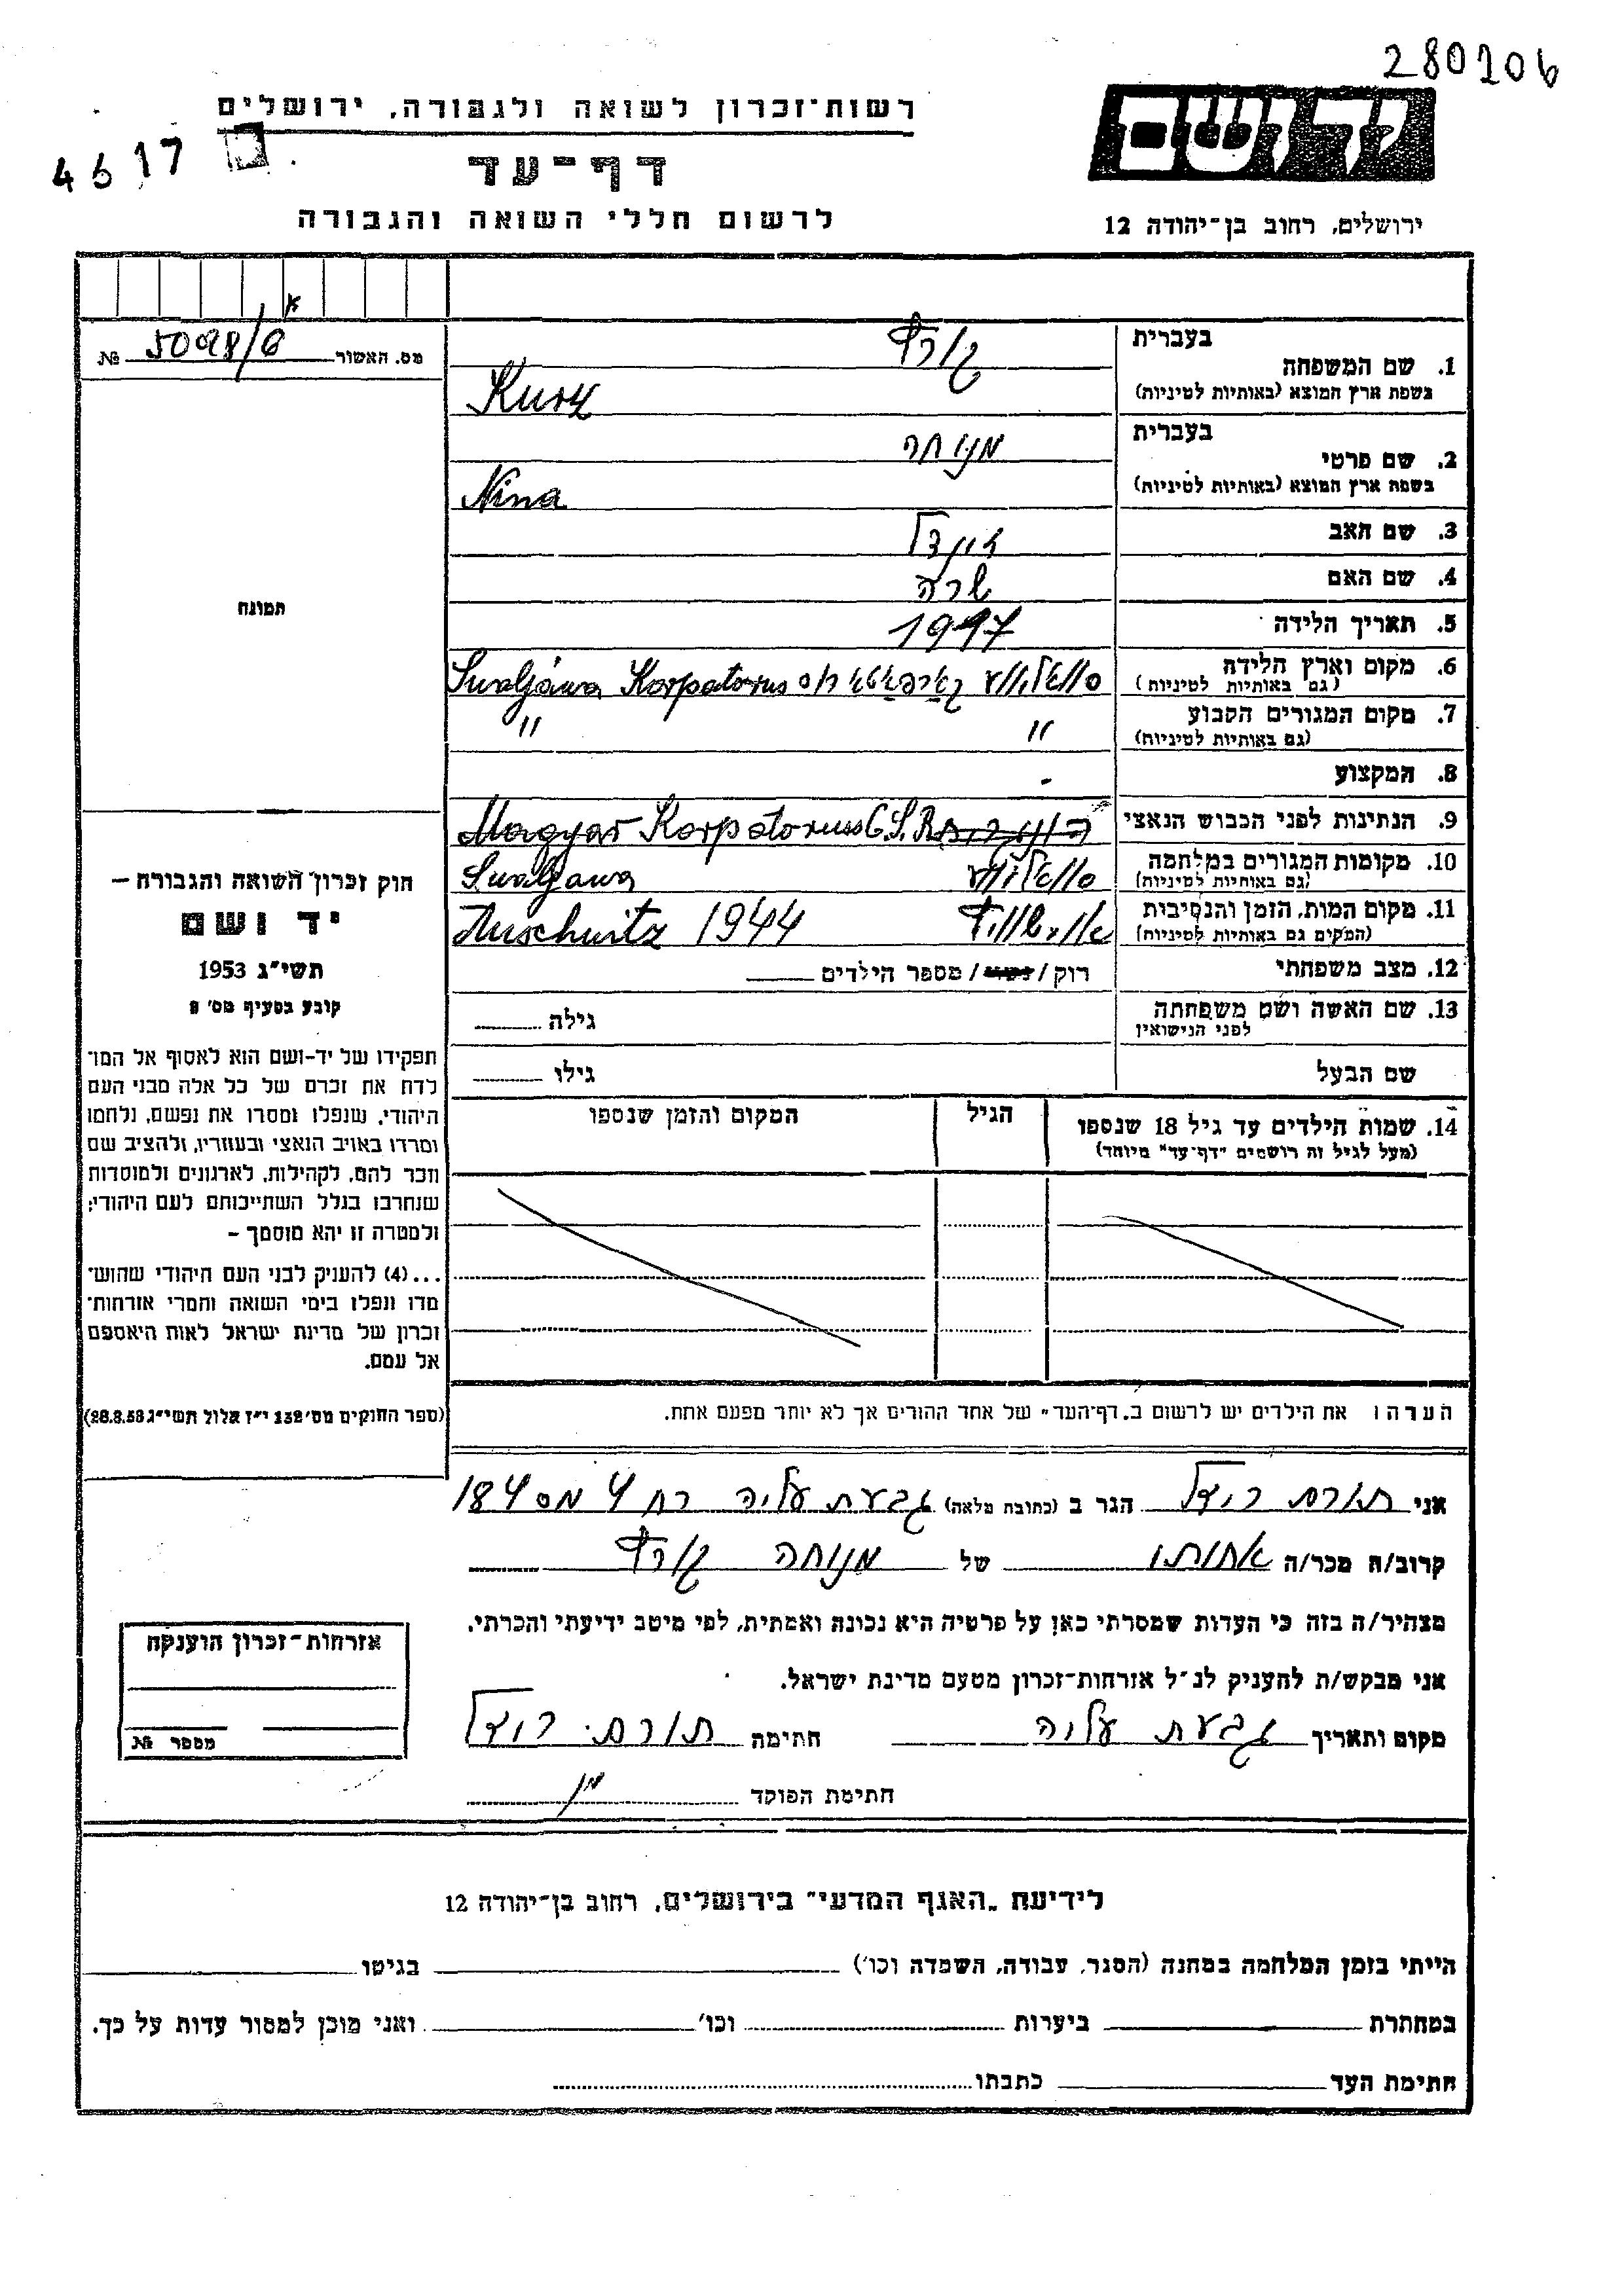 280206
רשות-זכרון לשואה ולגבורה, ירושלים
4617
דף-עד
לרשום חללי השואה והגבורה
ירושלים, רחוב בן-יהודה 12
מס. האשור 5098/6 №
בעברית
1. שם המשפחה
קורץ
בשפת ארץ המוצא (באותיות לטיניות)
Kurz
בעברית
2. שם פרטי
מנוחה
בשפת ארץ המוצא (באותיות לטיניות)
Nina
3. שם האב
4. שם האם שרה
5. תאריך הלידה
6. מקום וארץ הלידה
(גם באותיות לטיניות)
Swaljáwa Korpatorus
7. מקום המגורים הקבוע " "
(גם באותיות לטיניות)
8. המקצוע -
9. הנתינות לפני הכבוש הנאצי Magyar Korpatoruss C.S.R.
10. מקומות המגורים במלחמה
(גם באותיות לטיניות)
Swaljawa
11. מקום המות, הזמן והנסיבות
(המקום גם באותיות לטיניות)
Auschwitz 1944
12. מצב משפחתי רוק / נשוי / מספר הילדים
13. שם האשה ושם משפחתה
לפני הנישואין
גילה
שם הבעל גילו
14. שמות הילדים עד גיל 18 שנספו
(מעל לגיל זה רושמים "דף-עד" מיוחד)
הגיל
המקום והזמן שנספו
הערה: את הילדים יש לרשום ב"דף-העד" של אחד ההורים אך לא יותר מפעם אחת.
תמונה
חוק זכרון השואה והגבורה –
יד ושם
תשי"ג 1953
קובע בסעיף מס' 2
תפקידו של יד-ושם הוא לאסוף אל המו־
לדת את זכרם של כל אלה מבני העם
היהודי, שנפלו ומסרו את נפשם, נלחמו
ומרדו באויב הנאצי ובעוזריו, ולהציב שם
וזכר להם, לקהילות, לארגונים ולמוסדות
שנחרבו בגלל השתייכותם לעם היהודי;
ולמטרה זו יהא מוסמך –
...(4) להעניק לבני העם היהודי שהוש־
מדו ונפלו בימי השואה והמרי אזרחות־
זכרון של מדינת ישראל לאות היאספם
אל עמם.
(ספר החוקים מס' 132 י"ז אלול תשי"ג 28.8.53)
אני הגר ב (כתובת מלאה) גבעת עליה רח 4 מס 184
קרוב/ה מכר/ה אחותו של מנוחה קורץ
מצהיר/ה בזה כי העדות שמסרתי כאן על פרטיה היא נכונה ואמתית, לפי מיטב ידיעתי והכרתי.
אני מבקש/ת להעניק לנ"ל אזרחות-זכרון מטעם מדינת ישראל.
מקום ותאריך גבעת עליה חתימה
חתימת הפוקד
אזרחות-זכרון הוענקה
מספר №
לידיעת "האגף המדעי" בירושלים, רחוב בן-יהודה 12
הייתי בזמן המלחמה במחנה (הסגר, עבודה, השמדה וכו') בגיטו
במחתרת ביערות וכו' ואני מוכן למסור עדות על כך.
חתימת העד כתבתו